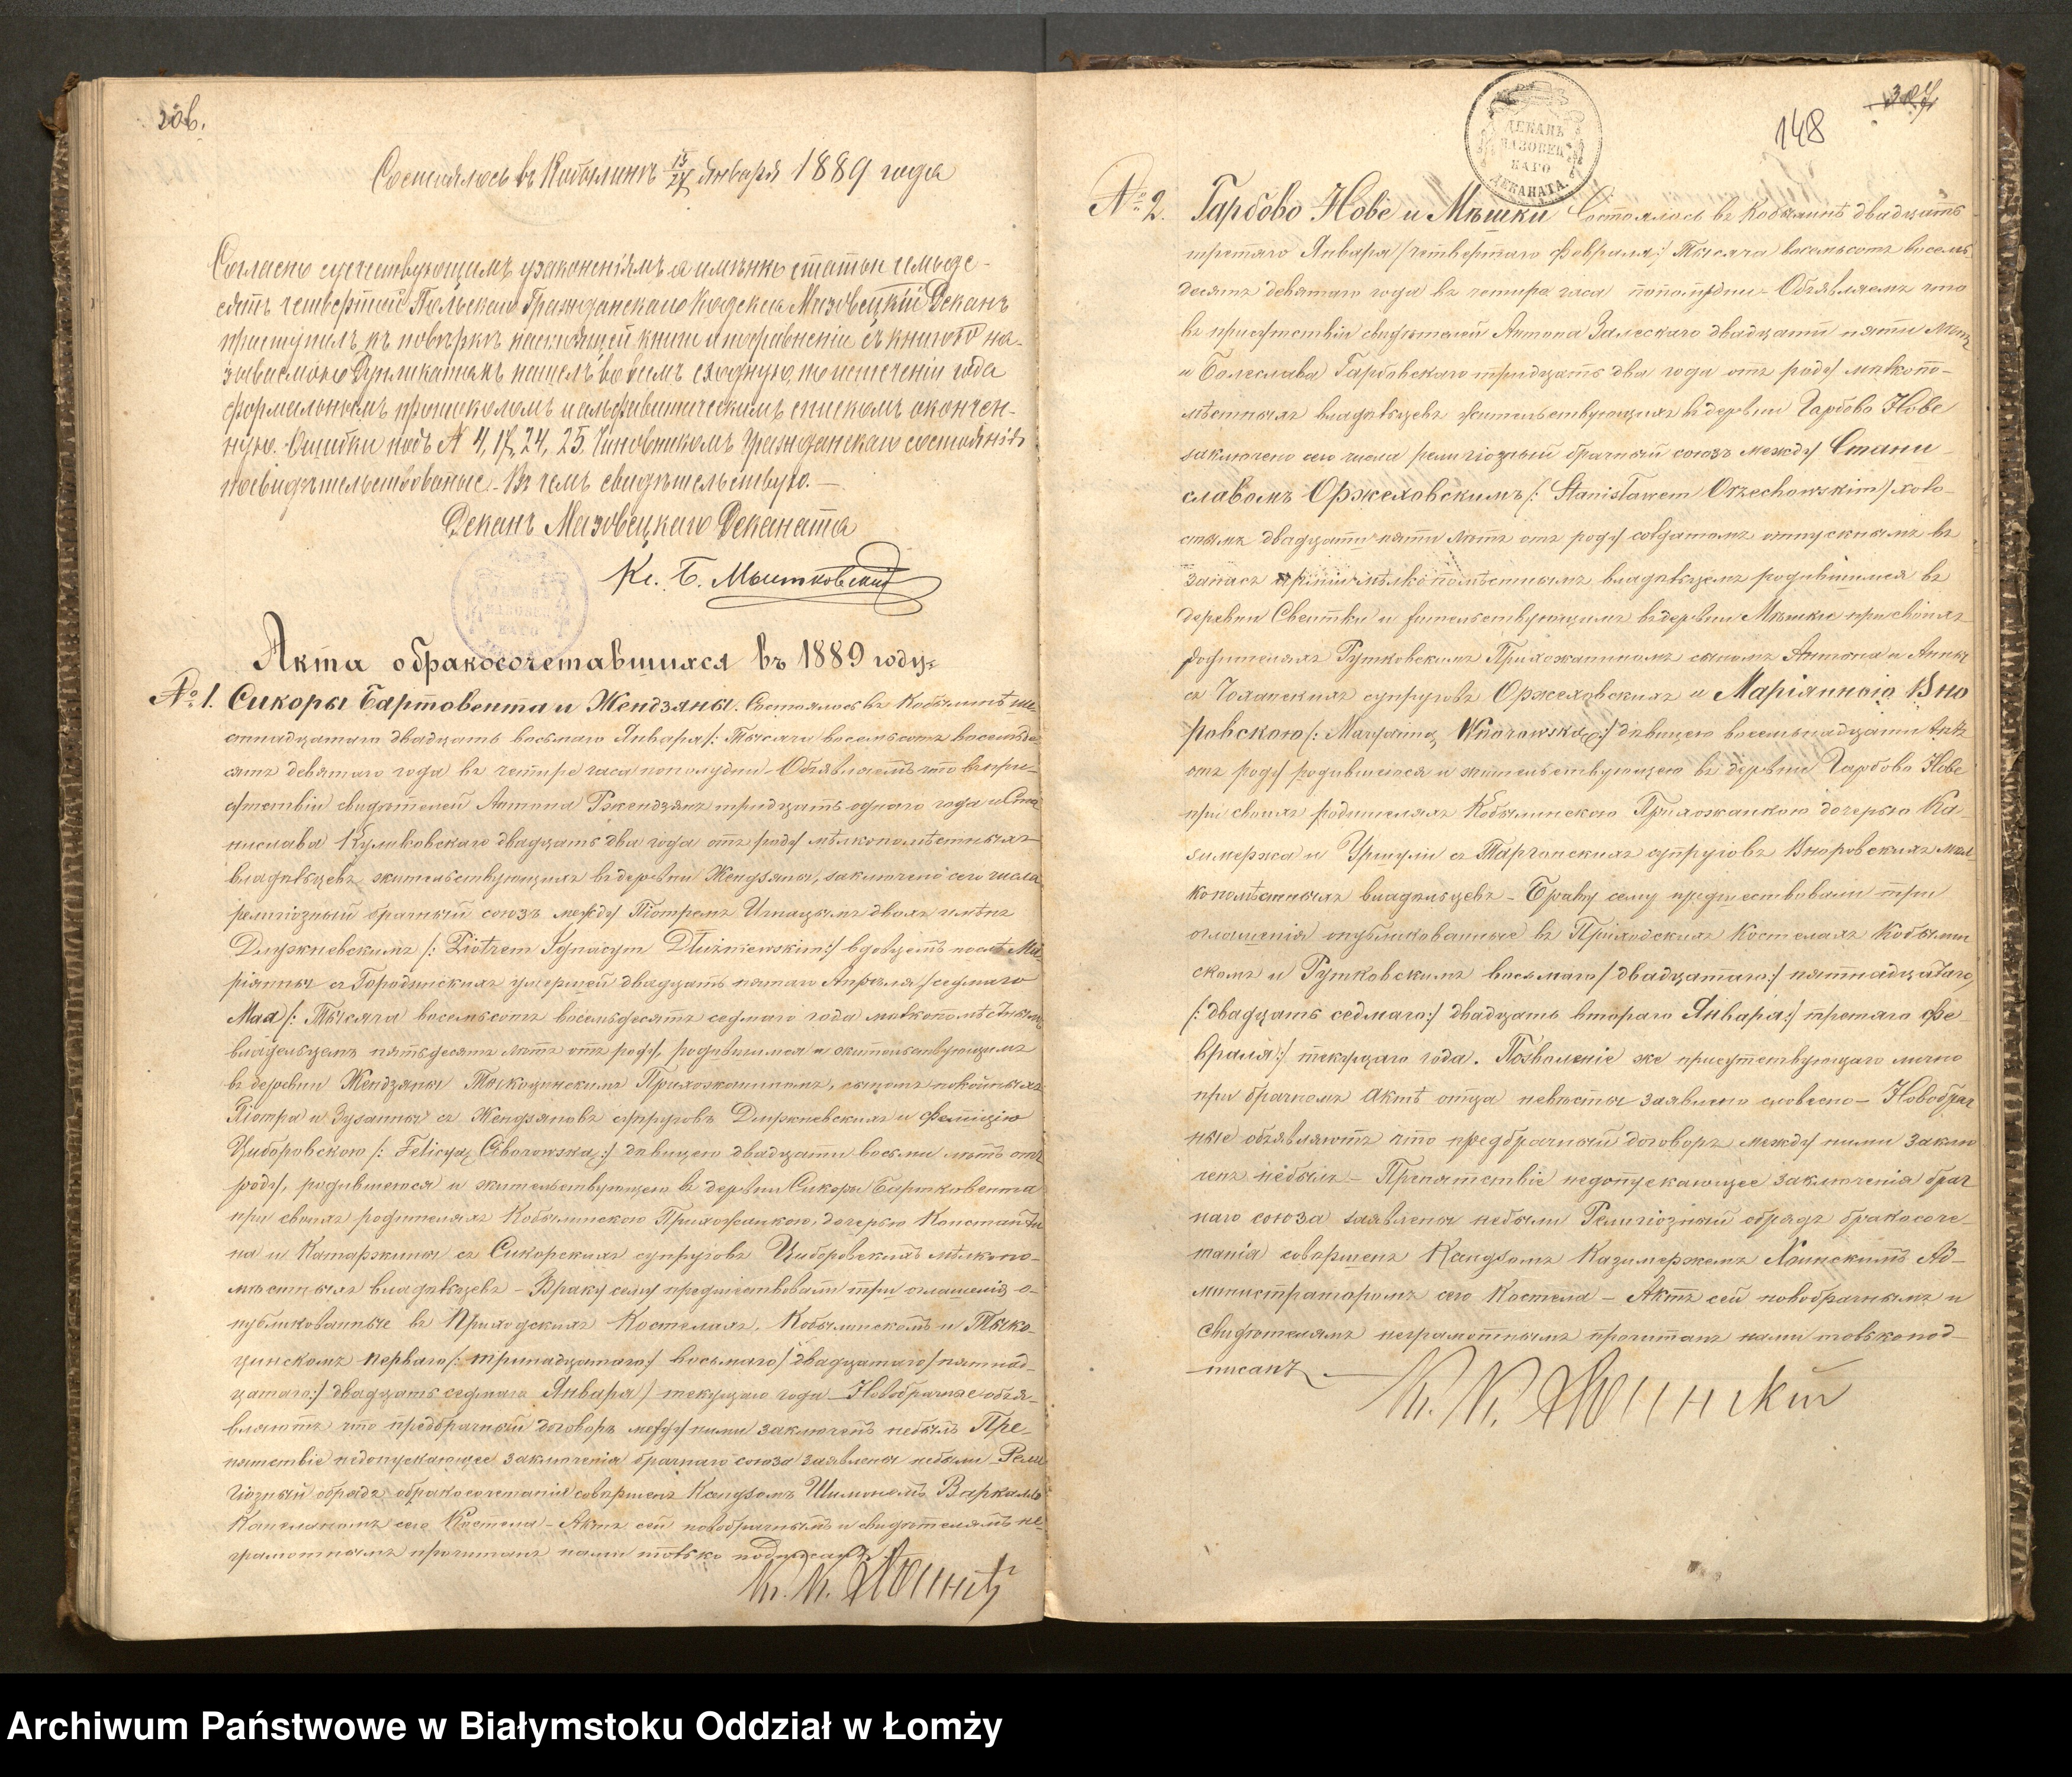 306.
Состоялось въ Кобылинѣ 15/27 Января 1889 года
Согласно существующимъ узаконеніямъ а именно статьи семьде-
сятъ четвертой Польскаго Гражданскаго Кодекса Мазовецкій Деканъ
приступилъ къ повѣркѣ настоящей книги и по сравненіи съ книгою на-
зываемою Дупликатомъ нашелъ во всемъ сходную, по истеченіи года
формальнымъ протоколомъ и алфавитическимъ спискомъ окончен-
ную. Ошибки подъ № 4, 17, 24, 25, Чиновникомъ Гражданскаго состоянія
посвидѣтельствованые. Въ чемъ свидѣтельствую. —
Деканъ Мазовецкаго Деканата
Кс. Б.
Акта обракосочетавшихся въ 1889 году
№ 1. Сикоры Бартовента и Жендзяны. Состоялось въ Кобылинѣ ше-
стнадцатаго двадцать восьмаго Января /: Тысяча восемьсотъ восемьде-
сятъ девятаго года въ четыре часа пополудни – Объявляемъ что въ при-
сутствіи свидѣтелей Антона Ржендзянъ тридцать одного года и Ста-
нислава Куликовскаго двадцать два года отъ роду мѣлкопомѣстныхъ
владѣльцевъ жительствующихъ въ деревни Жендзяны, заключено сего числа
религіозный брачный союзъ между Піотремъ Игнацымъ двохъ имѣнъ
Длужневскимъ /: Piotrem Ignacym Dłużniewskim :/ вдовцемъ послѣ Ма-
ріянны съ Городенскихъ умершей двадцать пятаго Апрѣля / седмаго
Мая /: Тысяча восемьсотъ восемьдесятъ седмаго года мѣлкопомѣстнымъ
владельцемъ пятьдесятъ лѣтъ отъ роду, родившимся и жительствующимъ
въ деревни Жендзяны Тыкоцинскимъ Прихожаниномъ, сыномъ покойныхъ
Піотра и Зузанны съ Жендзяновъ супруговъ Длужневскихъ и Фелиціею
Циборовскою /: Felicyą Ciborowską :/ дѣвицею двадцати восьми лѣтъ отъ
роду, родившеюся и жительствующею въ деревни Сикоры Бартковента
при своихъ родителяхъ Кобылинскою Прихожанкою, дочерью Константы-
на и Катаржины съ Сикорскихъ супруговъ Цыборовскихъ мѣлкопо-
мѣстныхъ владѣльцевъ – Браку сему предшествовали три оглашенія о-
публикованные въ Приходскихъ Костелахъ, Кобылинскомъ и Тыко-
цинскомъ перваго /: тринадцатаго :/ восьмаго / двадцатаго / пятнад-
цатаго :/ двадцать седмаго Января / текущаго года – Новобрачные объя-
вляютъ что предбрачный договоръ между ними заключенъ небылъ Пре-
пятствіе недопускающее заключенія брачнаго союза заявлены небыли – Рели-
гіозный обрядъ обракосочетанія совершенъ Ксендзомъ Шимономъ
Капеланомъ сего Костела – Актъ сей новобрачнымъ и свидѣтелямъ не-
грамотнымъ прочитанъ нами только подписанъ.
Кс. К.
307
148
ДЕКАНЪ
МАЗОВЕЦ-
КАГО
ДЕКАНАТА.
№ 2. Гарбово Нове и Мѣшки Состоялось въ Кобылинѣ двадцать
третяго Января / четвертаго Февраля :/ Тысяча восемьсотъ восемь-
десятъ девятаго года въ четыре часа пополудни – Объявляемъ что
въ присутствіи свидѣтелей Антона Залескаго двадцати пяти лѣтъ
и Болеслава Гарбовскаго тридцать два года отъ роду мѣлкопо-
мѣстныхъ владѣльцевъ жительствующихъ въ деревни Гарбово Нове
заключено сего числа религіозный брачный союзъ между Стани-
славомъ Оржеховскимъ /: Stanisławem Orzechowskim / холо-
стымъ двадцати пяти лѣтъ отъ роду солдатомъ отпускнымъ въ
запасъ арміи мѣлкопомѣстнымъ владѣльцемъ родившимся въ
деревни и жительствующимъ въ деревни Мѣшки при своихъ
родителяхъ Рутковскимъ Прихожаниномъ сыномъ Антона и Анны
съ супруговъ Оржеховскихъ и Маріянною Вно-
ровскою /: Maryanną Wnorowską :/ дѣвицею восемьнадцати лѣтъ
отъ роду родившеюся и жительствующею въ деревни Гарбово Нове
при своихъ родителяхъ Кобылинскою Прихожанкою дочерью Ка-
зимержа и Уршули съ Таргонскихъ супруговъ Вноровскихъ мѣл-
копомѣстныхъ владѣльцевъ – Браку сему предшествовали три
оглашенія опубликованные въ Приходскихъ Костелахъ Кобылин-
скомъ и Рутковскимъ восьмаго / двадцатаго :/ пятнадцатаго
/: двадцать седмаго :/ двадцать втораго Января :/ третяго Фе-
враля :/ текущаго года. Позволеніе же присутствующаго лично
при брачномъ актѣ отца невѣсты заявлено словесно – Новобрач-
ные объявляютъ что предбрачный договоръ между ними заклю-
ченъ небылъ – Препятствіе недопускающее заключенія брач-
наго союза заявлены небыли Религіозный обрядъ бракосоче-
танія совершенъ Ксендзомъ Казимержемъ Ад-
министраторомъ сего Костела – Актъ сей новобрачнымъ и
свидѣтелямъ неграмотнымъ прочитанъ нами только под-
писанъ. —
Кс. К.
Archiwum Państwowe w Białymstoku Oddział w Łomży